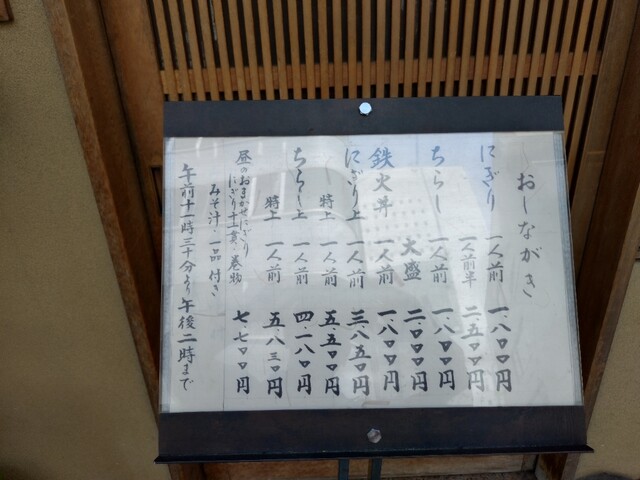 おしながき
にぎり 一人前 一.八〇〇円
一人前半 二.五〇〇円
ちらし 一人前 一.八〇〇円
大盛 二.〇〇〇円
鉄火丼 一人前 一.八〇〇円
にぎり上 一人前 三.八五〇円
〃 特上 一人前 五.五〇〇円
ちらし上 一人前 四.一八〇円
特上 一人前 五.八三〇円
昼のおまかせにぎり
にぎり十一貫・巻物 七.七〇〇円
みそ汁・一品 付き
午前十一時三十分より午後二時まで